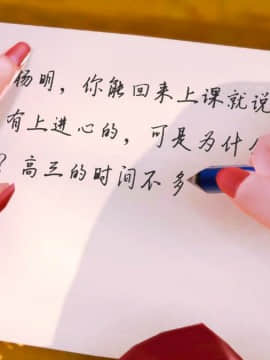 杨明，你能回来上课就说
有上进心的，可是为什么
？高三的时间不多